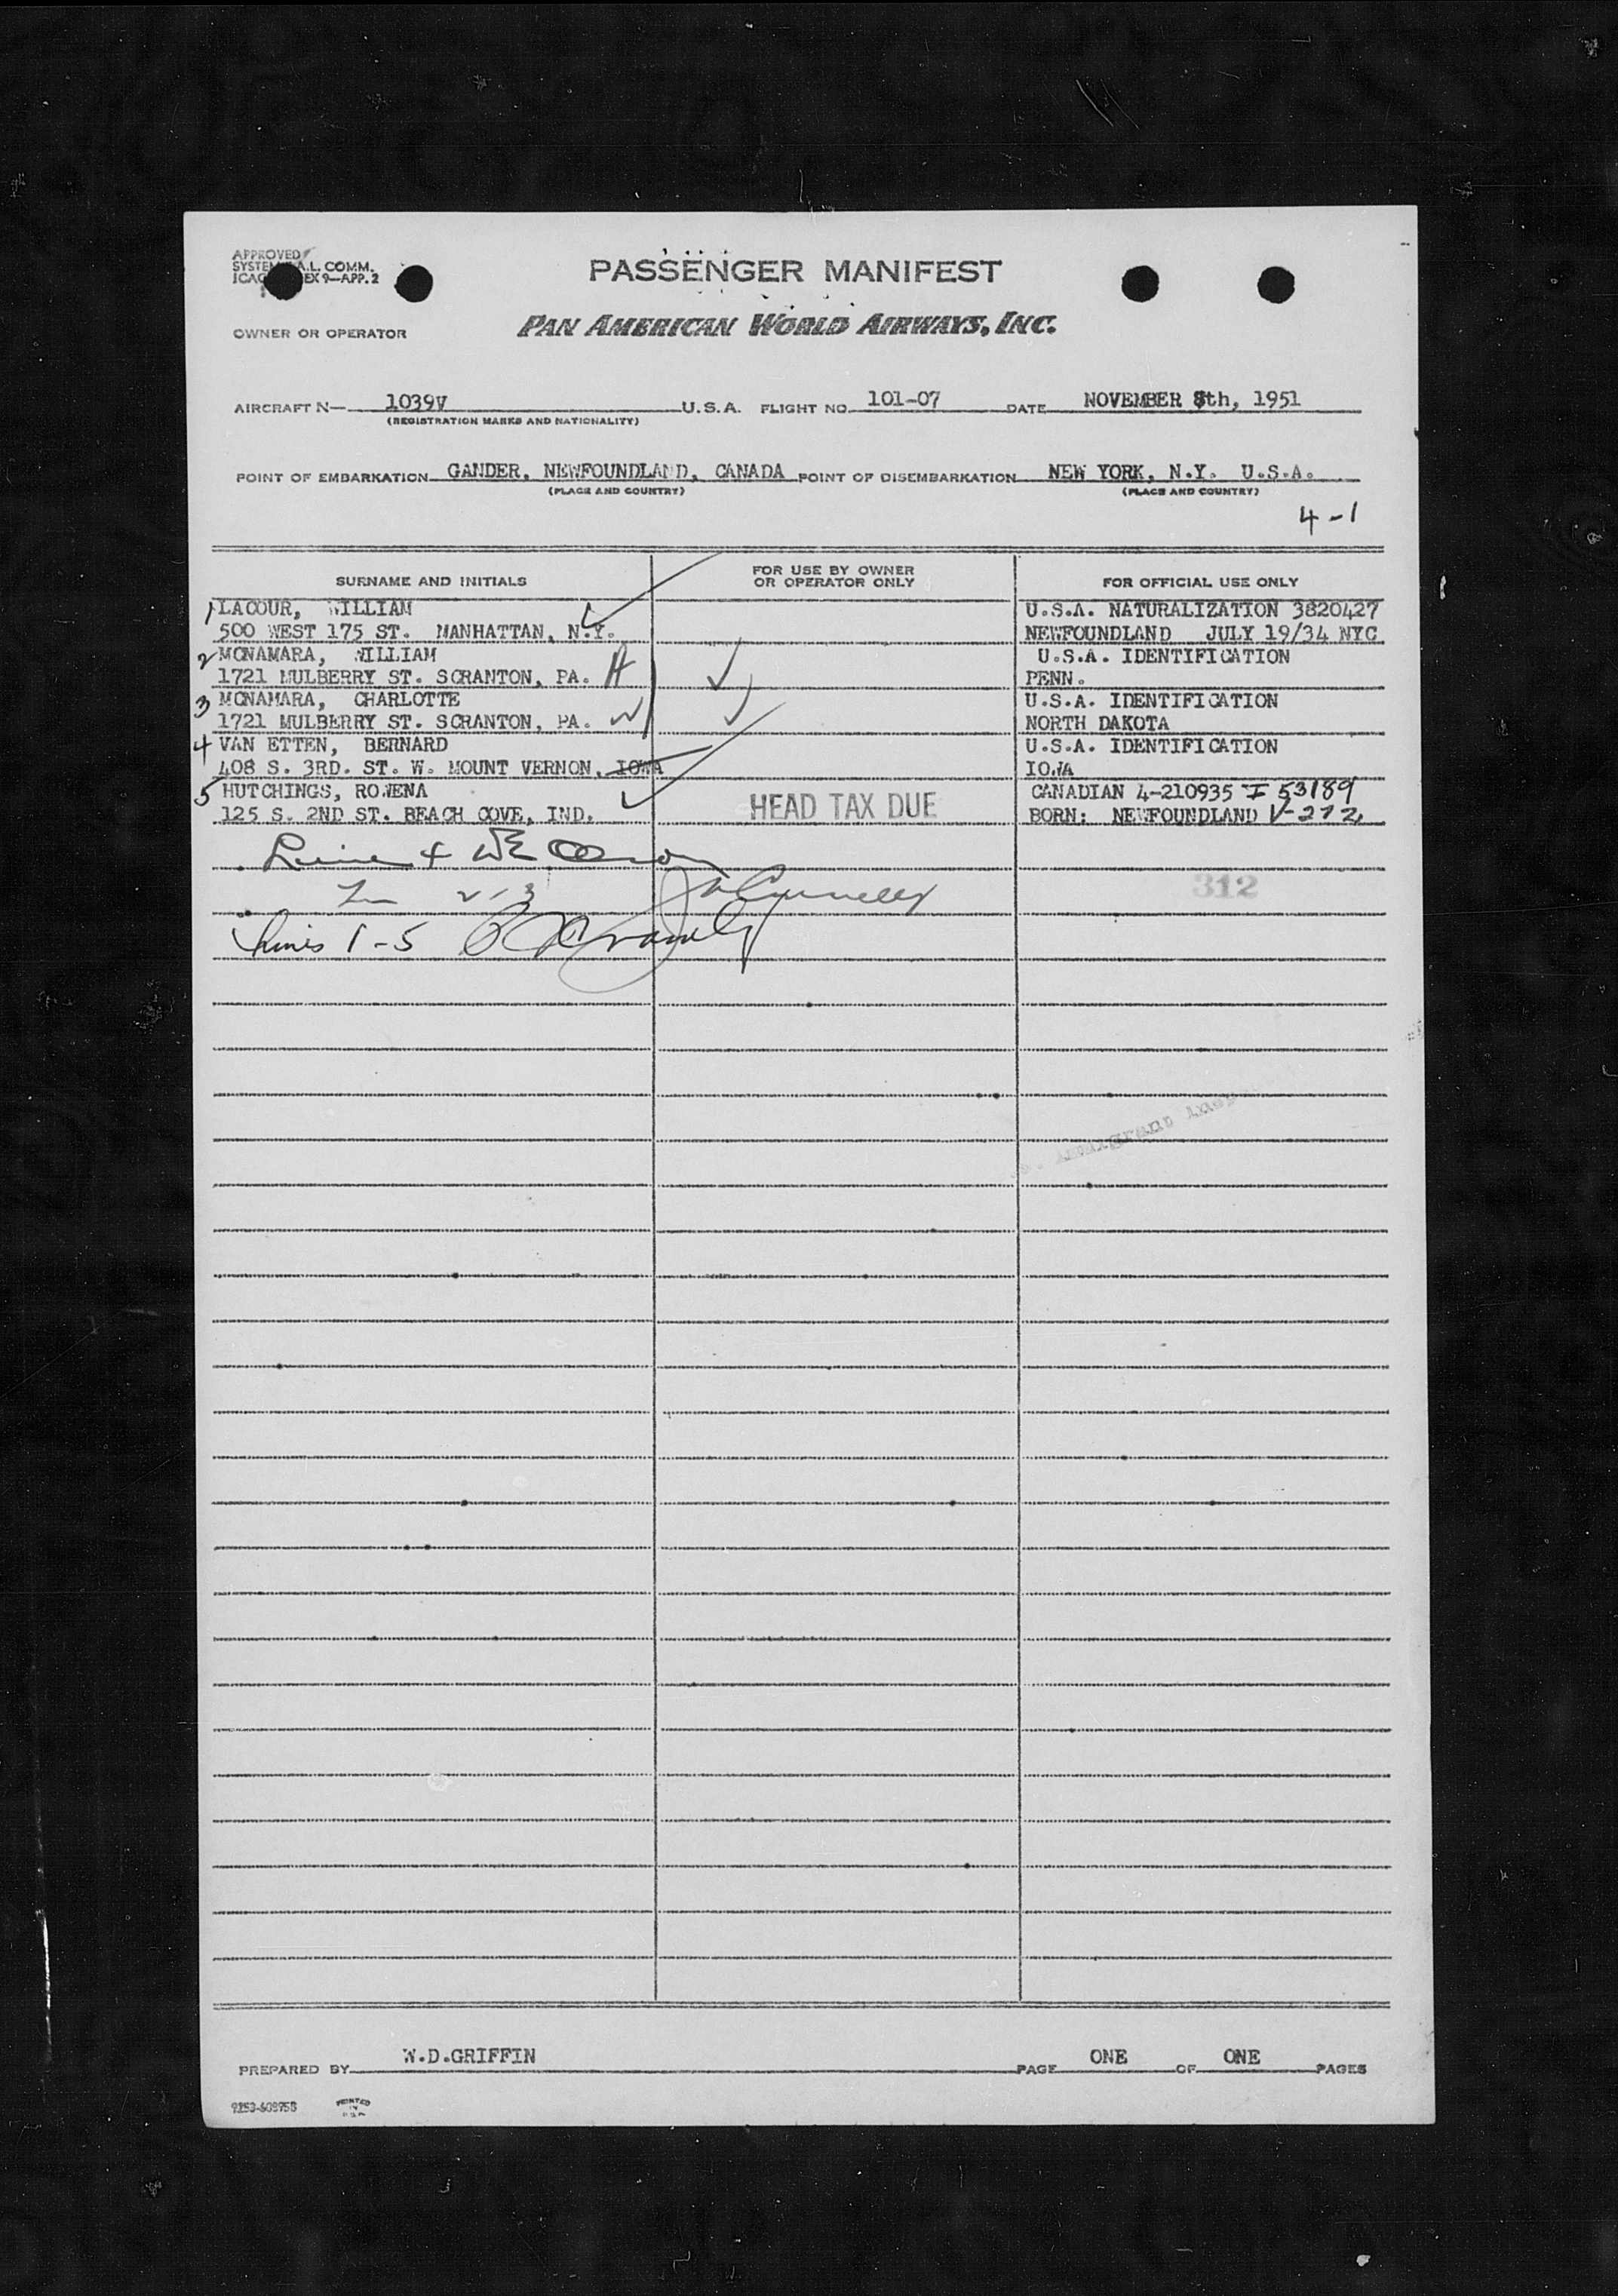 APPROVED
SYSTEM A.L. COMM.
EX 9—APP. 2
PASSENGER MANIFEST
OWNER OR OPERATOR PAN AMERICAN WORLD AIRWAYS, INC.
AIRCRAFT N— 1039V U.S.A. FLIGHT NO. 101-07 DATE NOVEMBER 8th, 1951
(REGISTRATION MARKS AND NATIONALITY)
POINT OF EMBARKATION GANDER, NEWFOUNDLAND, CANADA POINT OF DISEMBARKATION NEW YORK, N.Y. U.S.A.
(PLACE AND COUNTRY) (PLACE AND COUNTRY)
4-1
SURNAME AND INITIALS FOR USE BY OWNER OR OPERATOR ONLY FOR OFFICIAL USE ONLY
1 LACOUR, WILLIAM U.S.A. NATURALIZATION 3820427
500 WEST 175 ST. MANHATTAN, N.Y. NEWFOUNDLAND JULY 19/34 NYC
2 MCNAMARA, WILLIAM U.S.A. IDENTIFICATION
1721 MULBERRY ST. SCRANTON, PA. PENN.
3 MCNAMARA, CHARLOTTE U.S.A. IDENTIFICATION
1721 MULBERRY ST. SCRANTON, PA. NORTH DAKOTA
4 VAN ETTEN, BERNARD U.S.A. IDENTIFICATION
408 S. 3RD. ST. W. MOUNT VERNON, IOWA IOWA
5 HUTCHINGS, ROWENA CANADIAN 4-210935 I 53189
125 S. 2ND ST. BEACH COVE, IND. HEAD TAX DUE BORN: NEWFOUNDLAND V-272
Line 4
2-3 312
Lines 1-5
PREPARED BY W.D.GRIFFIN PAGE ONE OF ONE PAGES
9253-608958 PRINTED IN U.S.A.